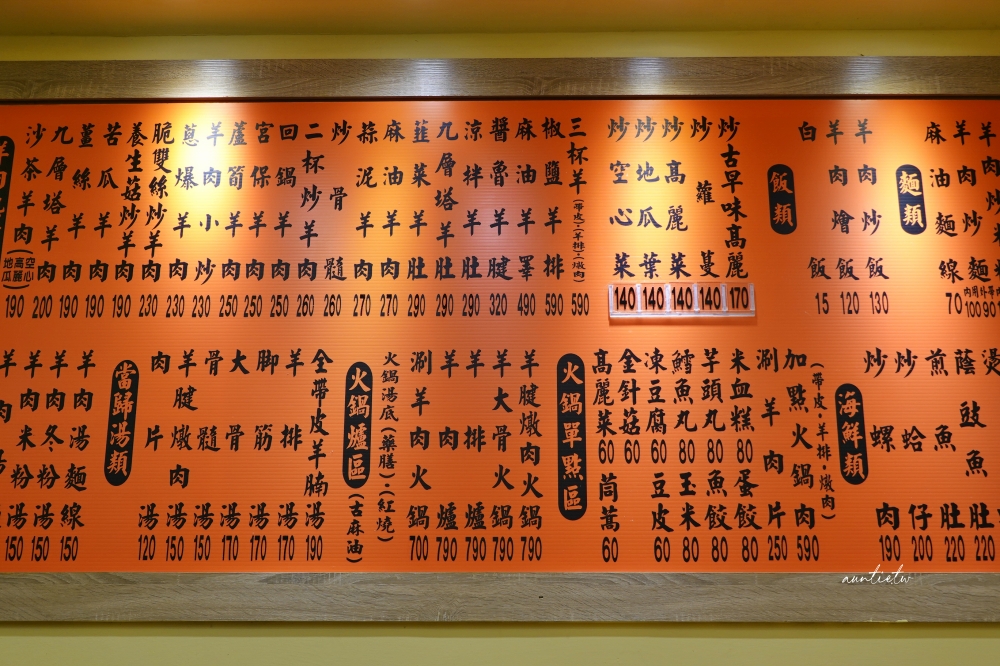 麵類
麻油麵線 70
飯類
羊肉炒飯 130
羊肉燴飯 120
白飯 15
炒古早味高麗 170
炒蘿蔓 140
炒高麗菜 140
炒地瓜葉 140
炒空心菜 140
三杯羊(帶皮、羊排、燉肉) 590
椒鹽羊排 590
麻油羊睪 490
醬魯羊腱 320
涼拌羊肚 290
九層塔羊肚 290
韮菜羊肚 290
麻油羊肉 270
蒜泥羊肉 270
炒骨髓 260
二杯炒羊肉 260
回鍋羊肉 250
宮保羊肉 250
蘆筍羊肉 250
羊肉小炒 230
蔥爆羊肉 230
脆雙絲炒羊肉 230
養生菇炒羊肉 190
苦瓜羊肉 190
薑絲羊肉 190
九層塔羊肉 200
沙茶羊肉 190
(空心 高麗 地瓜)
蔭豉魚肚 220
煎魚肚 220
炒蛤仔 200
炒螺肉 190
海鮮類
加點火鍋肉 (帶皮、羊排、燉肉) 590
涮羊肉片 250
米血糕 80
蛋餃 80
芋頭丸 80
魚餃 80
鱈魚丸 80
玉米 80
凍豆腐 60
豆皮 60
金針菇 60
高麗菜 60
茼蒿 60
火鍋單點區
羊腱燉肉火鍋 790
羊大骨火鍋 790
羊排爐 790
羊肉爐 790
涮羊肉火鍋 700
火鍋湯底(藥膳)、(紅燒)
火鍋爐區(古麻油)
全帶皮羊腩湯 190
羊排湯 170
腳筋湯 170
大骨湯 170
骨髓湯 150
羊腱燉肉湯 150
肉片湯 120
當歸湯類
羊肉湯麵線 150
羊肉冬粉 150
羊肉米粉 150
auntietw